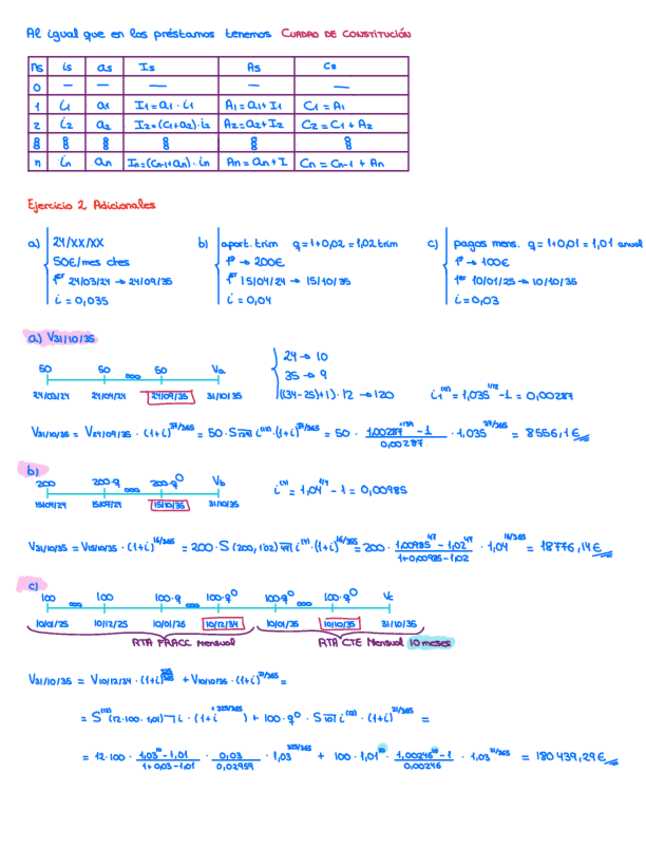 Al igual que en los préstamos tenemos CUADRO DE CONSTITUCIÓN
ns is as Is As Cs
0 — — — — —
1 i1 a1 I1=a1·i1 A1=a1+I1 C1=A1
2 i2 a2 I2=(C1+a2)·i2 A2=a2+I2 C2=C1+A2
n in an In=(Cn-1+an)·in An=an+I Cn=Cn-1+An
Ejercicio 2 Adicionales
a) 24/XX/XX
50€/mes ctes
1er 24/03/24 → 24/09/35
i = 0,035
b) aport. trim q=1+0,02=1,02 trim
1º → 200€
1er 15/04/24 → 15/10/35
i = 0,04
c) pagos mens. q=1+0,01=1,01 anual
1º → 100€
1er 10/01/25 → 10/10/35
i=0,03
a) V31/10/35
50 50 ... 50 Va
24/03/24 24/04/24 24/09/35 31/10/35
24 → 10
35 → 9
((34-25)+1)·12 → 120
i1(12) = 1,035^1/12 - 1 = 0,00287
V31/10/35 = V24/09/35 · (1+i)^37/365
= 8556,1€
b)
200 200·q ... 200·q Vb
15/04/24 15/07/24 15/10/35 31/10/35
i(4) = 1,04^1/4 - 1 = 0,00985
V31/10/35 = V15/10/35 · (1+i)^16/365
= 200 · (1,00985^47 - 1,02^47)/(1+0,00985-1,02) · 1,04^16/365 = 18776,14€
c)
100 ... 100 100·q ... 100·q 100·q ... 100·q Vc
10/01/25 10/12/25 10/01/25 10/12/34 10/01/35 10/10/35 31/10/35
RTA FRACC Mensual RTA CTE Mensual 10 meses
V31/10/35 = V10/12/34 · (1+i) + V10/10/35 · (1+i)^21/365 =
= S(12)(12·100·1,01) i · (1+i)^325/365 + 100·q · S i(12) · (1+i)^21/365 =
= 12·100 · (1,03^10 - 1,01)/(1+0,03-1,01) · 0,03/0,02959 · 1,03^325/365 + 100·1,01^10 · (1,00246^10 - 1)/0,00246 · 1,03^21/365 = 180439,29€